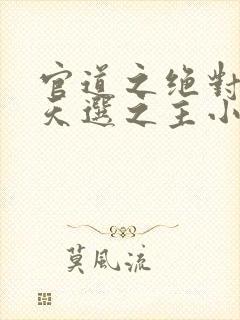 官道之绝對
天選之主小
莫風流